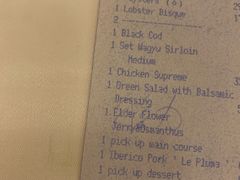 Oysters (6)
1 Lobster Bisque
2 ----------------
1 Black Cod
1 Set Wagyu Sirloin
Medium
1 Chicken Supreme
1 Green Salad with Balsamic
Dressing
1 Elder Flower
Jerry Osmanthus
1 pick up main course
1 Iberico Pork ' Le Pluma '
1 pick up dessert